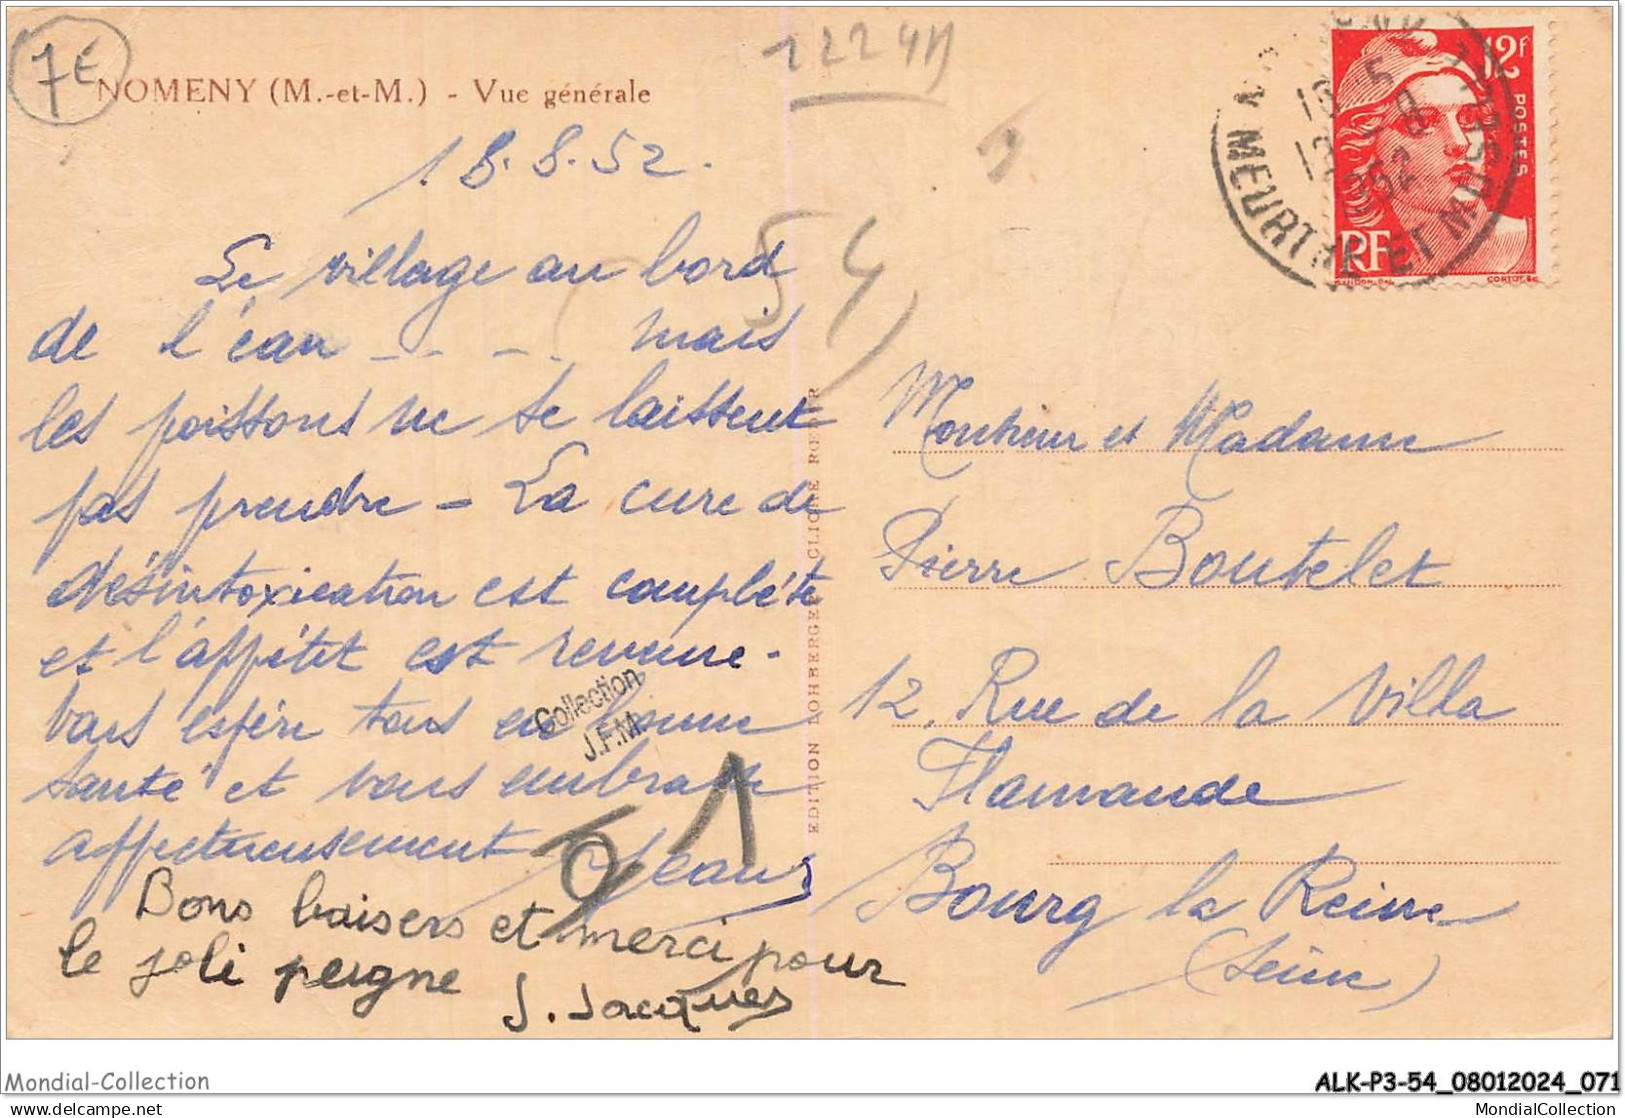 7€
1224N
NOMENY (M.-et-M.) - Vue générale
12F
POSTES
RF
GANDON.DEL
CORTOT.SC
MEURTHE ET MOSELLE
18.8.52.
54)
Le village au bord
de l'eau _ _ _ _ mais
les poissons ne se laissent
pas prendre - La cure de
désintoxication est complète
et l'appétit est revenue -
Vous espère tous en bonne
santé et vous embrasse
affectueusement Jean
Collection
J.F.M.
Bons baisers et merci pour
le joli peigne J. Jacques
EDITION LOHBERGER CLICHE RŒDER
Monsieur et Madame
Pierre Boutelet
12, Rue de la Villa
Flamande
Bourg la Reine
(Seine)
Mondial-Collection
ALK-P3-54_08012024_071
delcampe.net
MondialCollection